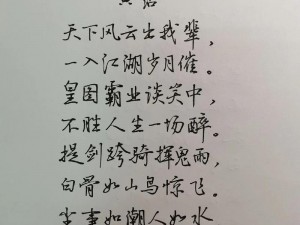 天下风云出我辈，
一入江湖岁月催。
皇图霸业谈笑中，
不胜人生一场醉。
提剑跨骑挥鬼雨，
白骨如山鸟惊飞。
尘事如潮人如水